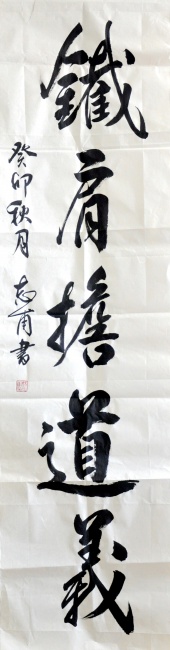 鐵肩擔道義
癸卯秋月 志甫書